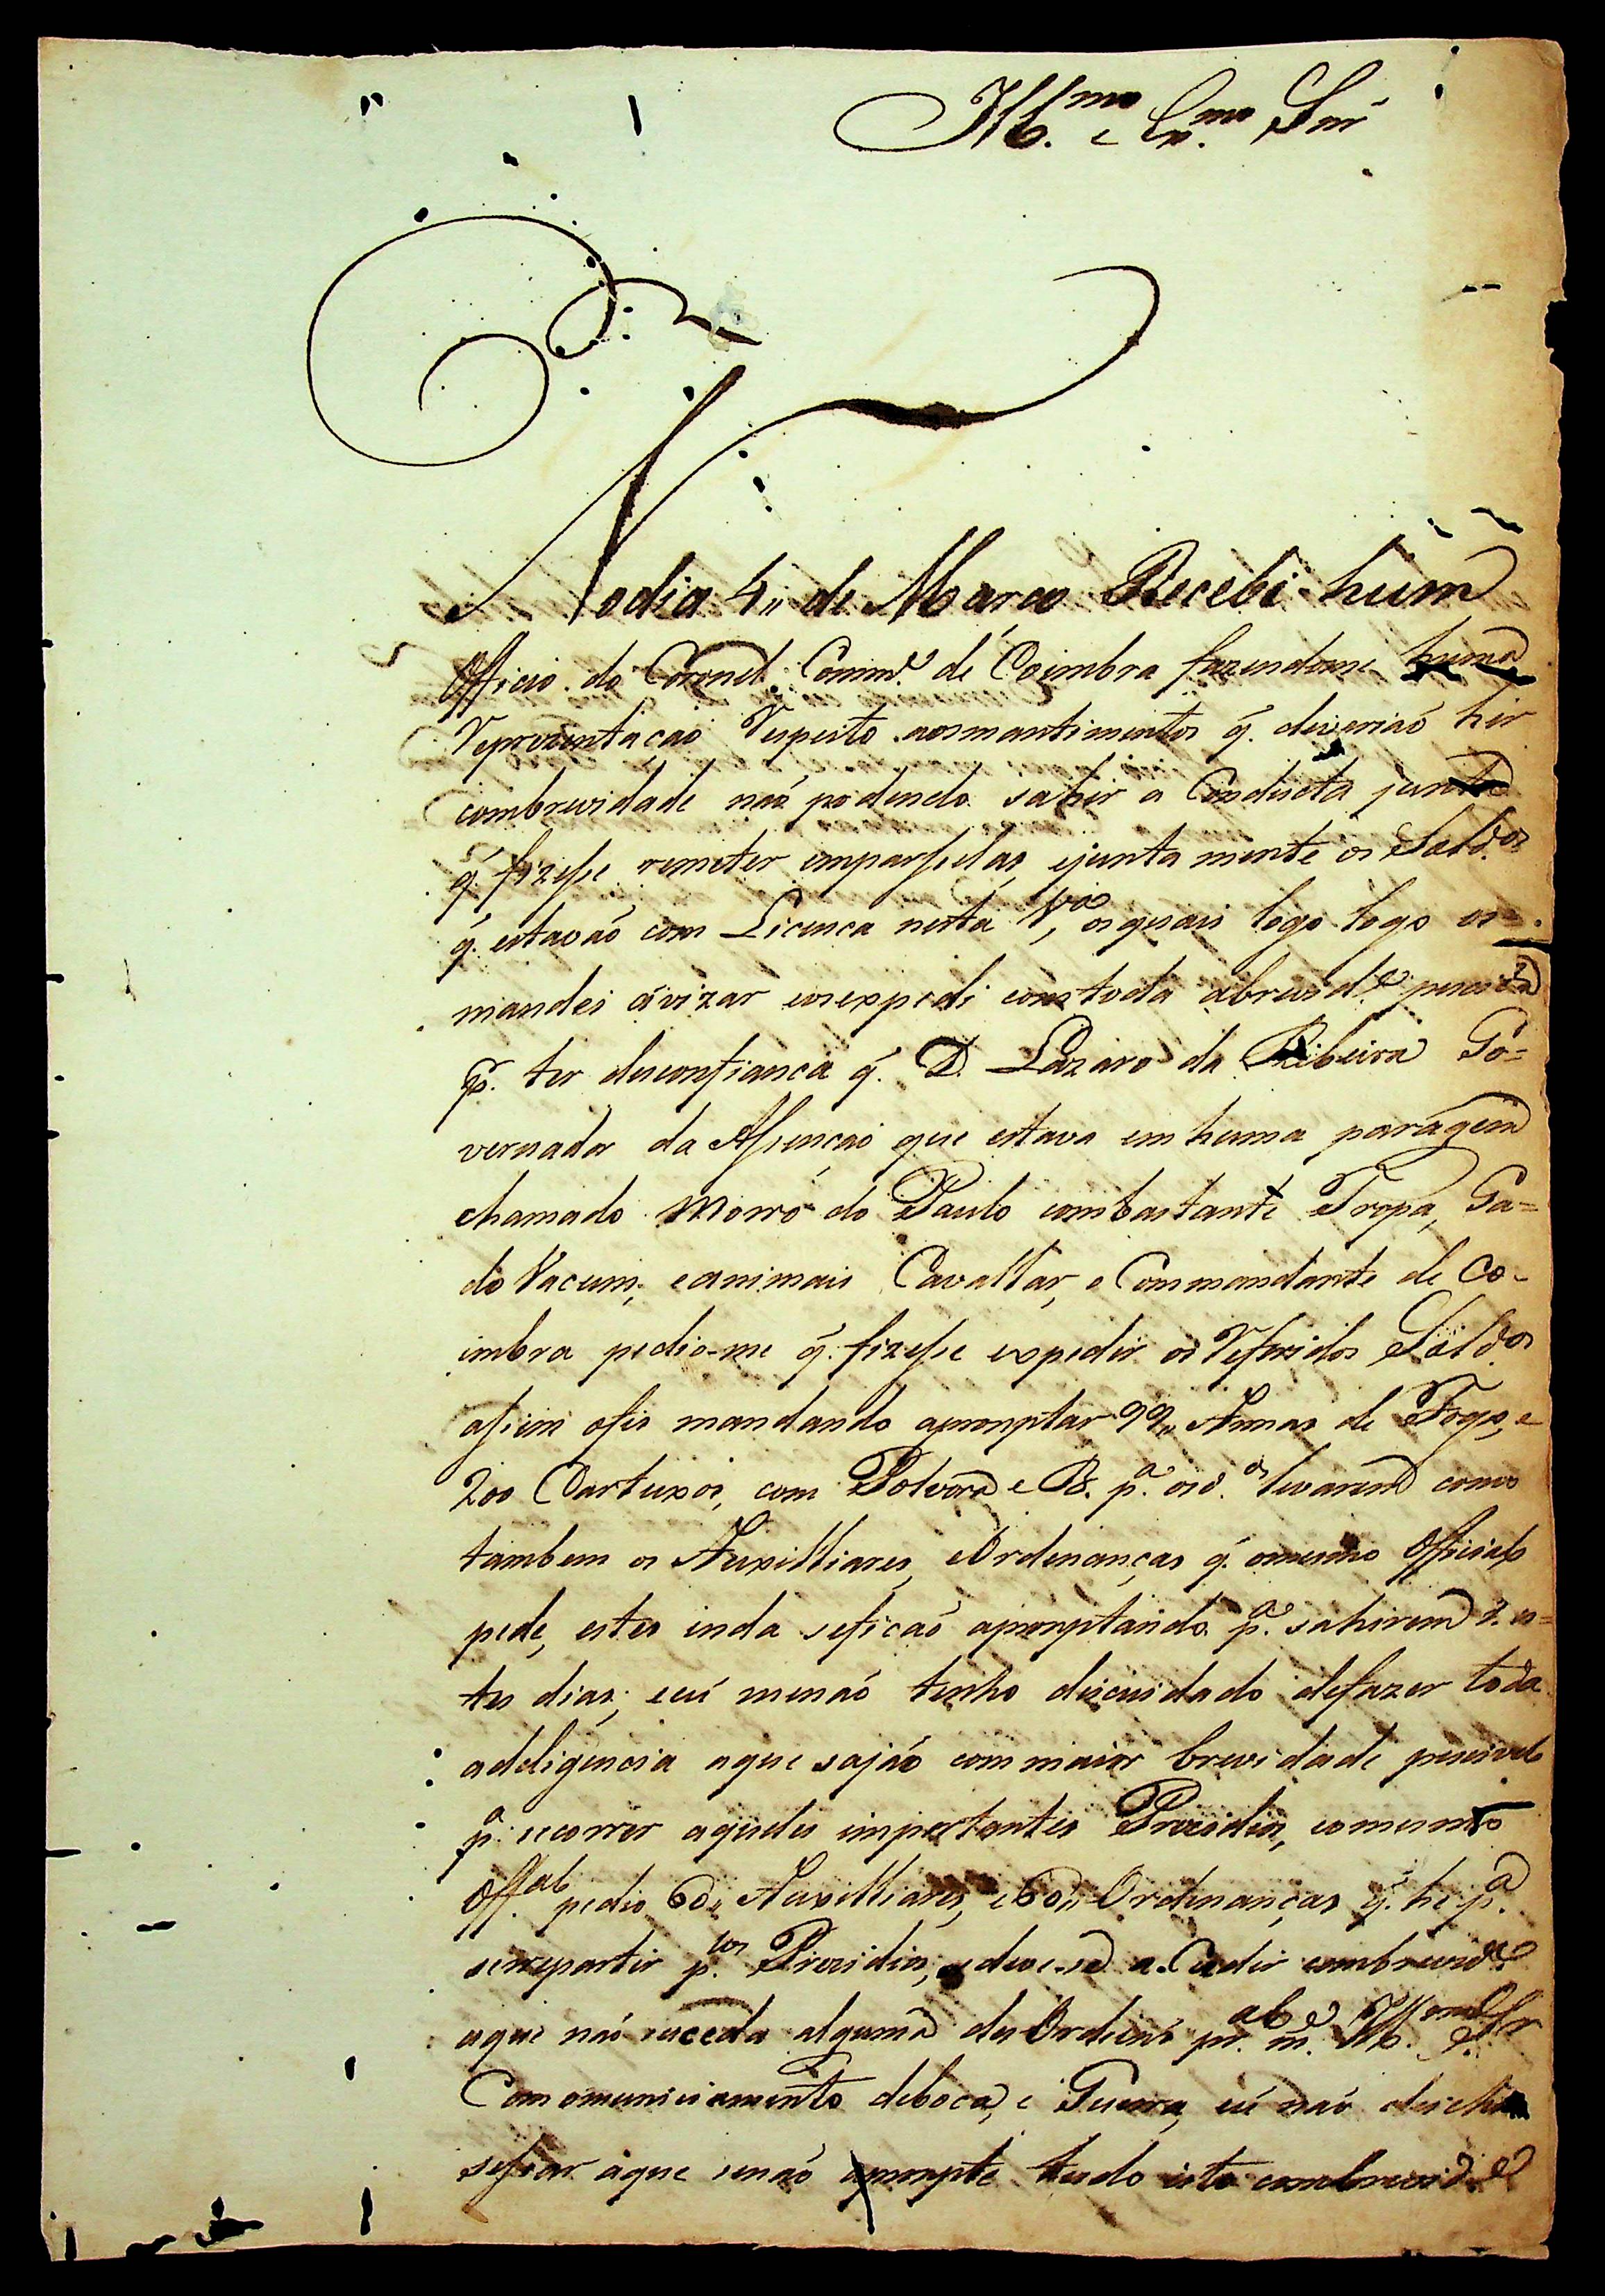 Ill.mo e Ex.mo Snr
Nodia 4,, de Março Recebi hum
Officio do Coronel Comm.e de Coimbra fazendome huma
Reprezentaçaõ Respeito aosmantimentos q̃. deveriaõ hir
combrevidade naõ podendo sahir a Conducta junta
q̃. fizesse remeter emparsellas, ejunta mente os Sold.os
q̃. estavaõ com Licença nesta V.a, osquais logo logo os
mandei avizar eosexpedi comtoda abrevid.e
p̃. ter desconfianca q̃. D. Lazaro da Ribeira Go=
vernador da Assuncaõ que estava emhuma paragem
chamado Morro do Paulo combastante Tropa, Ga=
do Vacum, eanimais Cavallar, o Commandante de Co-
imbra pedio-me q̃. fizesse expedir os Referidos Sold.os
assim ofis mandando apromptar 99,, Armas de Fogo, e
200 Cartuxos, com Polvora e B. p.a osd.os levarem como
tambem os Auxilliares, eOrdenanças q̃. omesmo Official
pede, estes inda seficaõ apromptando p.a sahirem n. es=
tes dias, eeú menaõ tenho descuidado defazer toda
adeligencia aque sajaõ com maior brevidade possivel
p.a secorrer aqueles importantes Prezidios, eomesmo
Off.al pedio 60,, Auxilliares, e60,, Ordenanças q̃. he p.a
serrepartir p.los Prezidios, edeve-se a Cudir combrevid.e
aque naõ suceda alguma desOrdem pr. al m.e Ill.mo Sr
Com omuniciamento deboca, e Guerra, eú naõ deicho
sefiar aque senaõ apronpte tudo isto combrevid.e